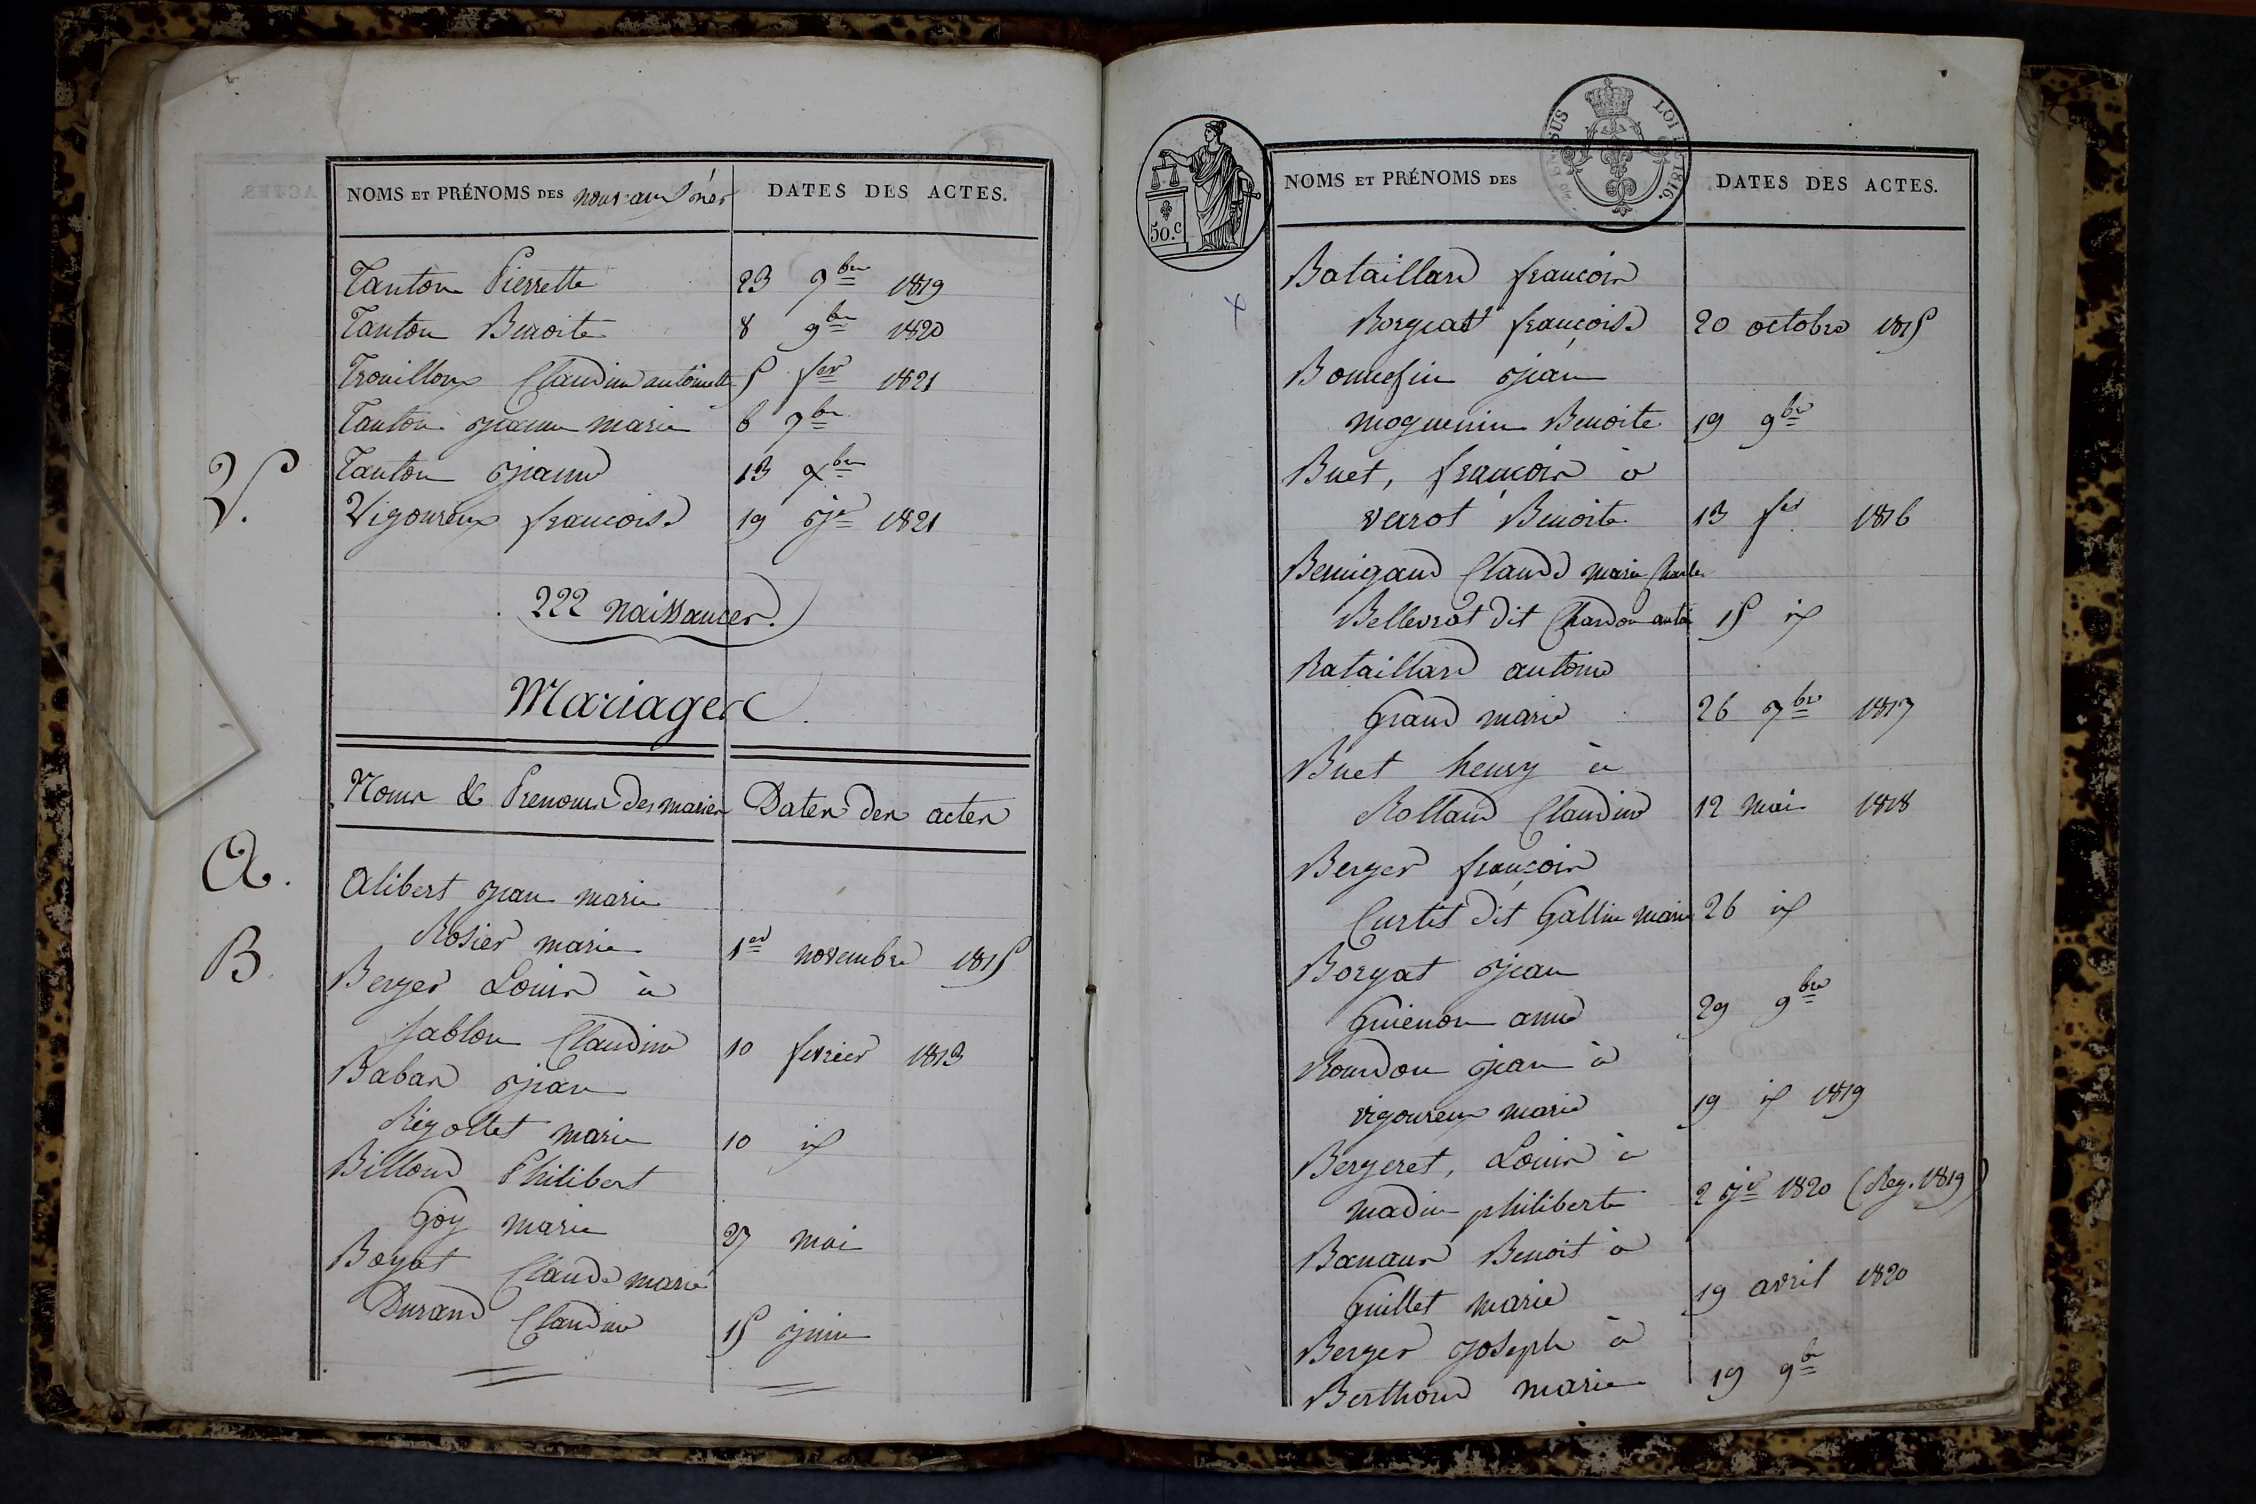 NOMS ET PRÉNOMS DES nouveaux nés DATES DES ACTES.
Tanton Pierrette 23 7bre 1819
Tanton Benoite 8 9bre 1820
Trouilloux Claudine antoinette 5 fer 1821
Tanton jeanne marie 6 7bre
V. Tanton jeanne 13 xbre
Vigoureux francoise 19 jer 1821
222 naissances.
Mariages
Noms & Prenoms des mariés Dates des actes
A. Alibert jean marie
Rosier marie 1er novembre 1815
B. Berger Louis à
Sablon Claudine 10 fevrier 1813
Babad jean
Rigollet marie 10 id
Billoud Philibert
Goy marie 27 mai
Boyat Claude marie
Durand Claudine 15 juin
50.c
LOI DE 1816.
NOMS ET PRÉNOMS DES DATES DES ACTES.
Bataillard francois
Borgeat françoise 20 octobre 1815
Bonnefin jean
moguenin Benoite 19 9bre
Buet, françois à
verrot Benoite 13 fer 1816
Bemigaud Claude marie Charles
Bellevrat dit Chardon 15 id
Bataillard antoine
Grand marie 26 7bre 1817
Buet henry à
Rolland Claudine 12 mai 1818
Berger françois
Curtit dit Gallin marie 26 id
Boryat jean
Guienon anne 29 9bre
Bourdon jean à
vigoureux marie 19 id 1819
Bergeret, Louis à
madin philiberte 2 jer 1820 (Reg. 1819)
Banaud Benoit à
Guillet marie 19 avril 1820
Berger joseph à
Berthoud marie 19 9b